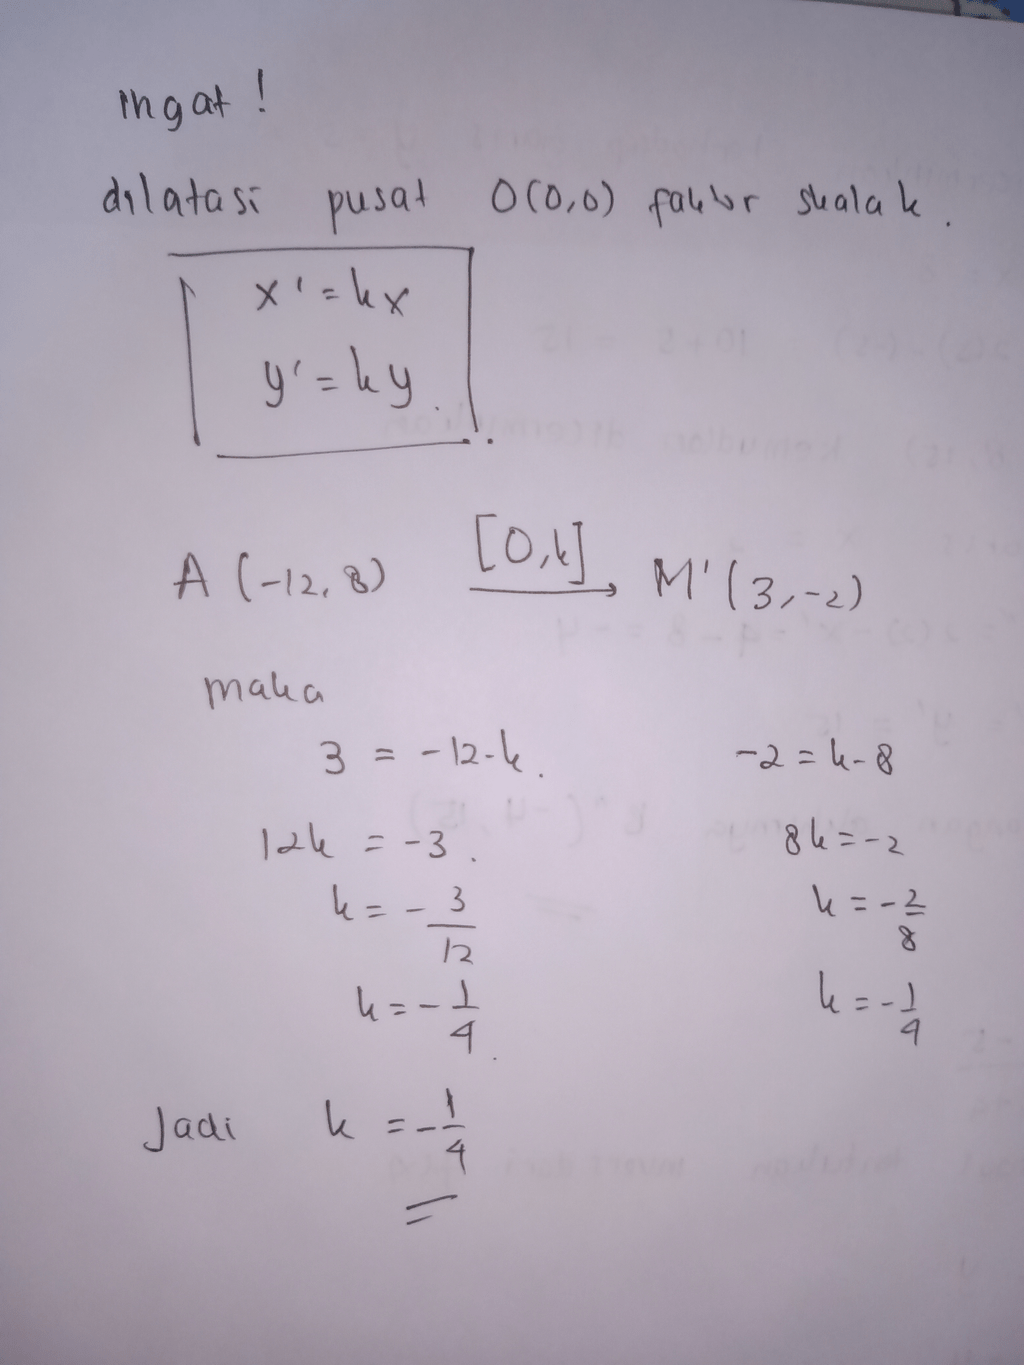 Ingat !
dilatasi pusat O(0,0) faktor skala k.
x' = kx
y' = ky.
A (-12, 8) [O,k] → M' (3,-2)
maka
3 = -12.k. -2 = k.8
12k = -3. 8k = -2
k = - 3/12 k = - 2/8
k = - 1/4. k = - 1/4
Jadi k = - 1/4